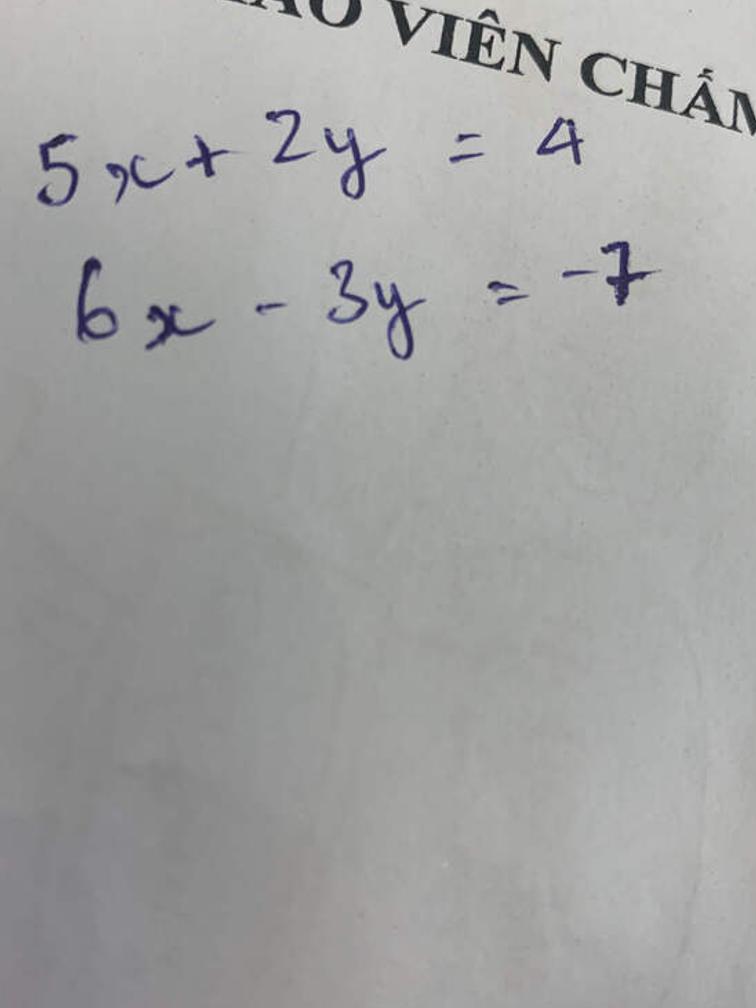 VIÊN CHẤM
5x + 2y = 4
6x - 3y = -7